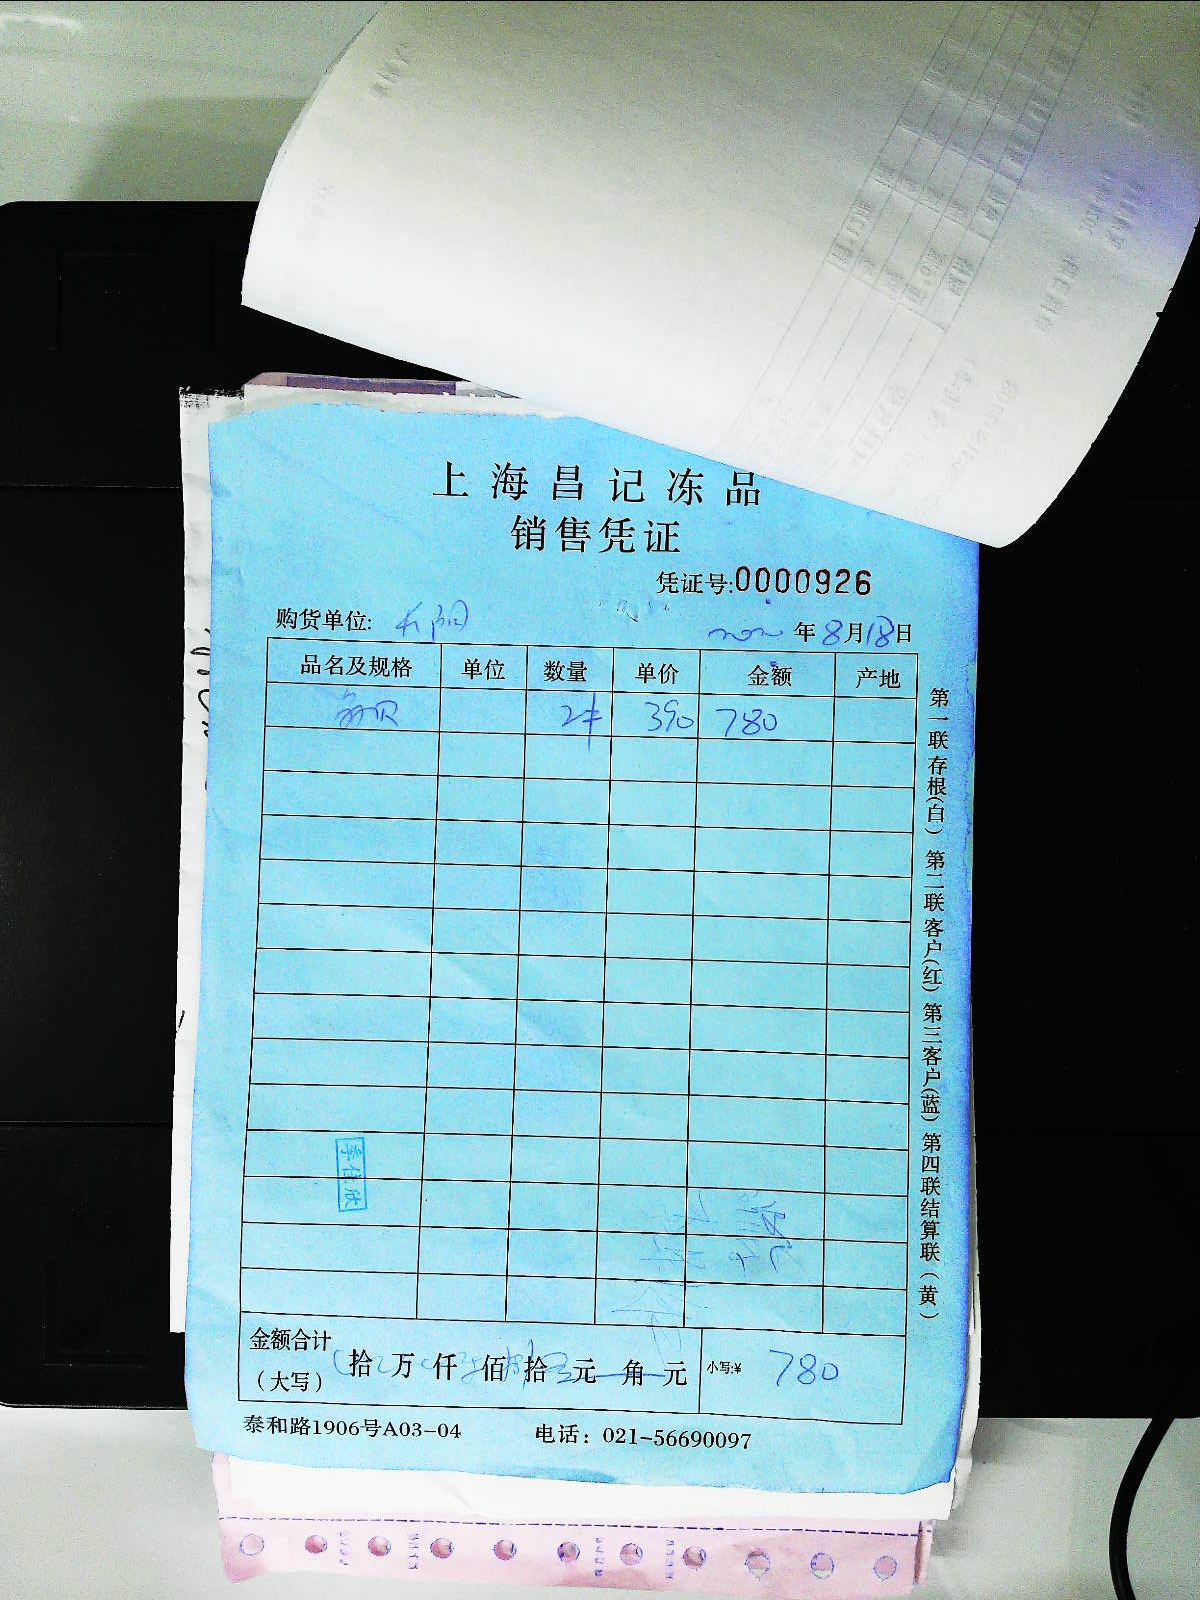 上海昌记冻品
销售凭证
凭证号:0000926
购货单位: 长阳
年8月18日
品名及规格 单位 数量 单价 金额 产地
2件 390 780
第一联存根(白) 第二联客户(红) 第三客户(蓝) 第四联结算联(黄)
李佳欣
金额合计
(大写) 拾万仟佰拾元角元 小写:¥ 780
泰和路1906号A03-04 电话: 021-56690097